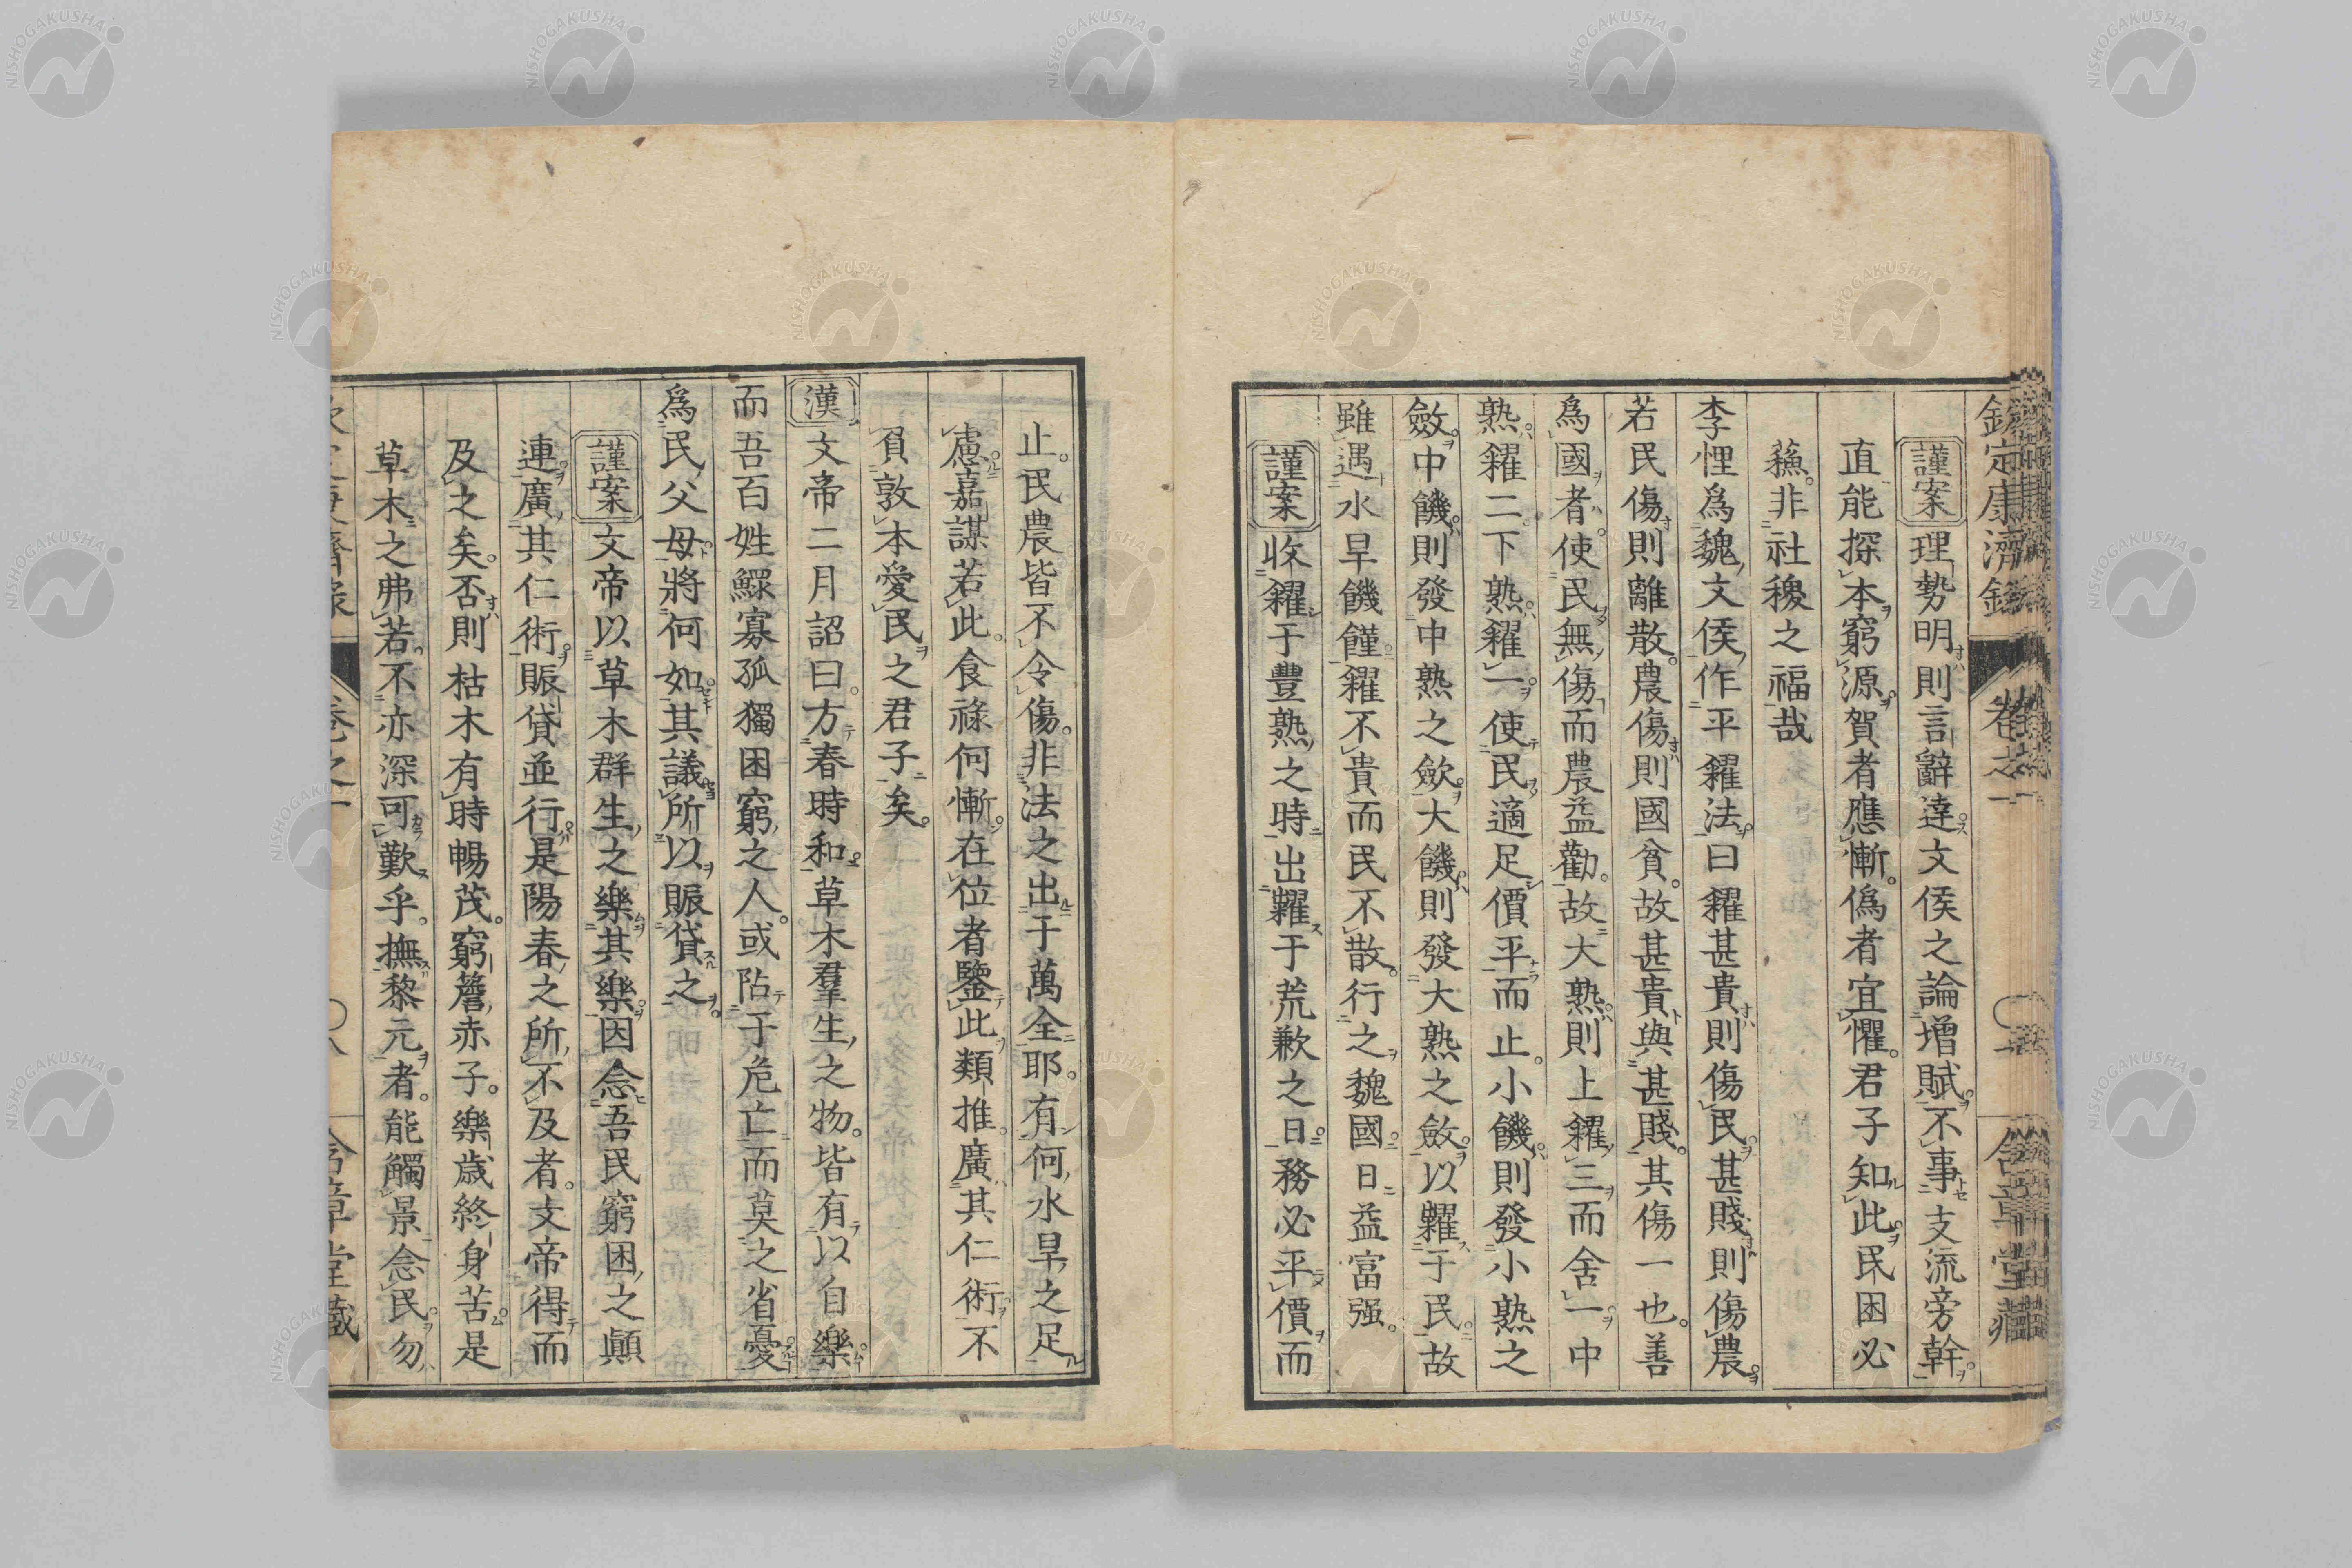 欽定康濟錄 卷之一
謹案理勢明則言辭達文侯之論增賦不事支流旁幹
直能探本窮源賀者應慚僞者宜懼君子知此民困必
蘓非社稷之福哉
李悝爲魏文侯作平糴法曰糴甚貴則傷民甚賤則傷農
若民傷則離散農傷則國貧故甚貴與甚賤其傷一也善
爲國者使民無傷而農益勸故大熟則上糴三而舍一中
熟糴二下熟糴一使民適足價平而止小饑則發小熟之
斂中饑則發中熟之斂大饑則發大熟之斂以糶于民故
雖遇水旱饑饉糴不貴而民不散行之魏國日益富强
謹案收糴于豐熟之時出糶于荒歉之日務必平價而
止民農皆不令傷非法之出于萬全耶有何水旱之足
慮嘉謀若此食祿何慚在位者鑒此類推廣其仁術不
負敦本愛民之君子矣
漢文帝二月詔曰方春時和草木羣生之物皆有以自樂
而吾百姓鰥寡孤獨困窮之人或阽于危亡而莫之省憂
爲民父母將何如其議所以賑貸之
謹案文帝以草木群生之樂其樂因念吾民窮困之顚
連廣其仁術賑貸並行是陽春之所不及者文帝得而
及之矣否則枯木有時暢茂窮簷赤子樂歲終身苦是
草木之弗若不亦深可歎乎撫黎元者能觸景念民勿
卷之一 〇八 含章堂藏